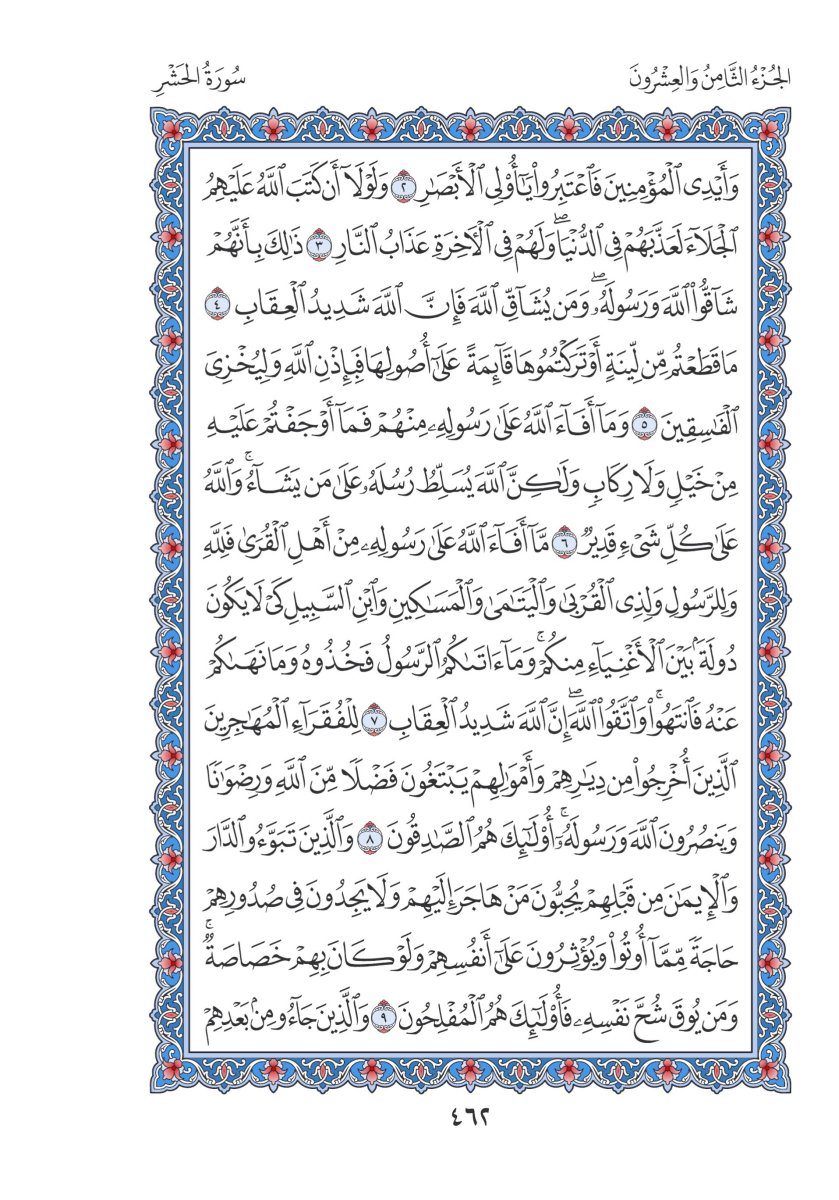 الجُزْءُ الثَّامِنُ وَالعِشْرُونَ
سُورَةُ الحَشْرِ
وَأَيْدِى ٱلْمُؤْمِنِينَ فَٱعْتَبِرُوا۟ يَٰٓأُو۟لِى ٱلْأَبْصَٰرِ ٢ وَلَوْلَآ أَن كَتَبَ ٱللَّهُ عَلَيْهِمُ
ٱلْجَلَآءَ لَعَذَّبَهُمْ فِى ٱلدُّنْيَا ۖ وَلَهُمْ فِى ٱلْءَاخِرَةِ عَذَابُ ٱلنَّارِ ٣ ذَٰلِكَ بِأَنَّهُمْ
شَآقُّوا۟ ٱللَّهَ وَرَسُولَهُۥ ۖ وَمَن يُشَآقِّ ٱللَّهَ فَإِنَّ ٱللَّهَ شَدِيدُ ٱلْعِقَابِ ٤
مَا قَطَعْتُم مِّن لِّينَةٍ أَوْ تَرَكْتُمُوهَا قَآئِمَةً عَلَىٰٓ أُصُولِهَا فَبِإِذْنِ ٱللَّهِ وَلِيُخْزِىَ
ٱلْفَٰسِقِينَ ٥ وَمَآ أَفَآءَ ٱللَّهُ عَلَىٰ رَسُولِهِۦ مِنْهُمْ فَمَآ أَوْجَفْتُمْ عَلَيْهِ
مِنْ خَيْلٍ وَلَا رِكَابٍ وَلَٰكِنَّ ٱللَّهَ يُسَلِّطُ رُسُلَهُۥ عَلَىٰ مَن يَشَآءُ ۚ وَٱللَّهُ
عَلَىٰ كُلِّ شَىْءٍ قَدِيرٌ ٦ مَّآ أَفَآءَ ٱللَّهُ عَلَىٰ رَسُولِهِۦ مِنْ أَهْلِ ٱلْقُرَىٰ فَلِلَّهِ
وَلِلرَّسُولِ وَلِذِى ٱلْقُرْبَىٰ وَٱلْيَتَٰمَىٰ وَٱلْمَسَٰكِينِ وَٱبْنِ ٱلسَّبِيلِ كَىْ لَا يَكُونَ
دُولَةًۢ بَيْنَ ٱلْأَغْنِيَآءِ مِنكُمْ ۚ وَمَآ ءَاتَىٰكُمُ ٱلرَّسُولُ فَخُذُوهُ وَمَا نَهَىٰكُمْ
عَنْهُ فَٱنتَهُوا۟ ۚ وَٱتَّقُوا۟ ٱللَّهَ ۖ إِنَّ ٱللَّهَ شَدِيدُ ٱلْعِقَابِ ٧ لِلْفُقَرَآءِ ٱلْمُهَٰجِرِينَ
ٱلَّذِينَ أُخْرِجُوا۟ مِن دِيَٰرِهِمْ وَأَمْوَٰلِهِمْ يَبْتَغُونَ فَضْلًا مِّنَ ٱللَّهِ وَرِضْوَٰنًا
وَيَنصُرُونَ ٱللَّهَ وَرَسُولَهُۥٓ ۚ أُو۟لَٰٓئِكَ هُمُ ٱلصَّٰدِقُونَ ٨ وَٱلَّذِينَ تَبَوَّءُو ٱلدَّارَ
وَٱلْإِيمَٰنَ مِن قَبْلِهِمْ يُحِبُّونَ مَنْ هَاجَرَ إِلَيْهِمْ وَلَا يَجِدُونَ فِى صُدُورِهِمْ
حَاجَةً مِّمَّآ أُوتُوا۟ وَيُؤْثِرُونَ عَلَىٰٓ أَنفُسِهِمْ وَلَوْ كَانَ بِهِمْ خَصَاصَةٌ ۚ
وَمَن يُوقَ شُحَّ نَفْسِهِۦ فَأُو۟لَٰٓئِكَ هُمُ ٱلْمُفْلِحُونَ ٩ وَٱلَّذِينَ جَآءُو مِنۢ بَعْدِهِمْ
٤٦٢